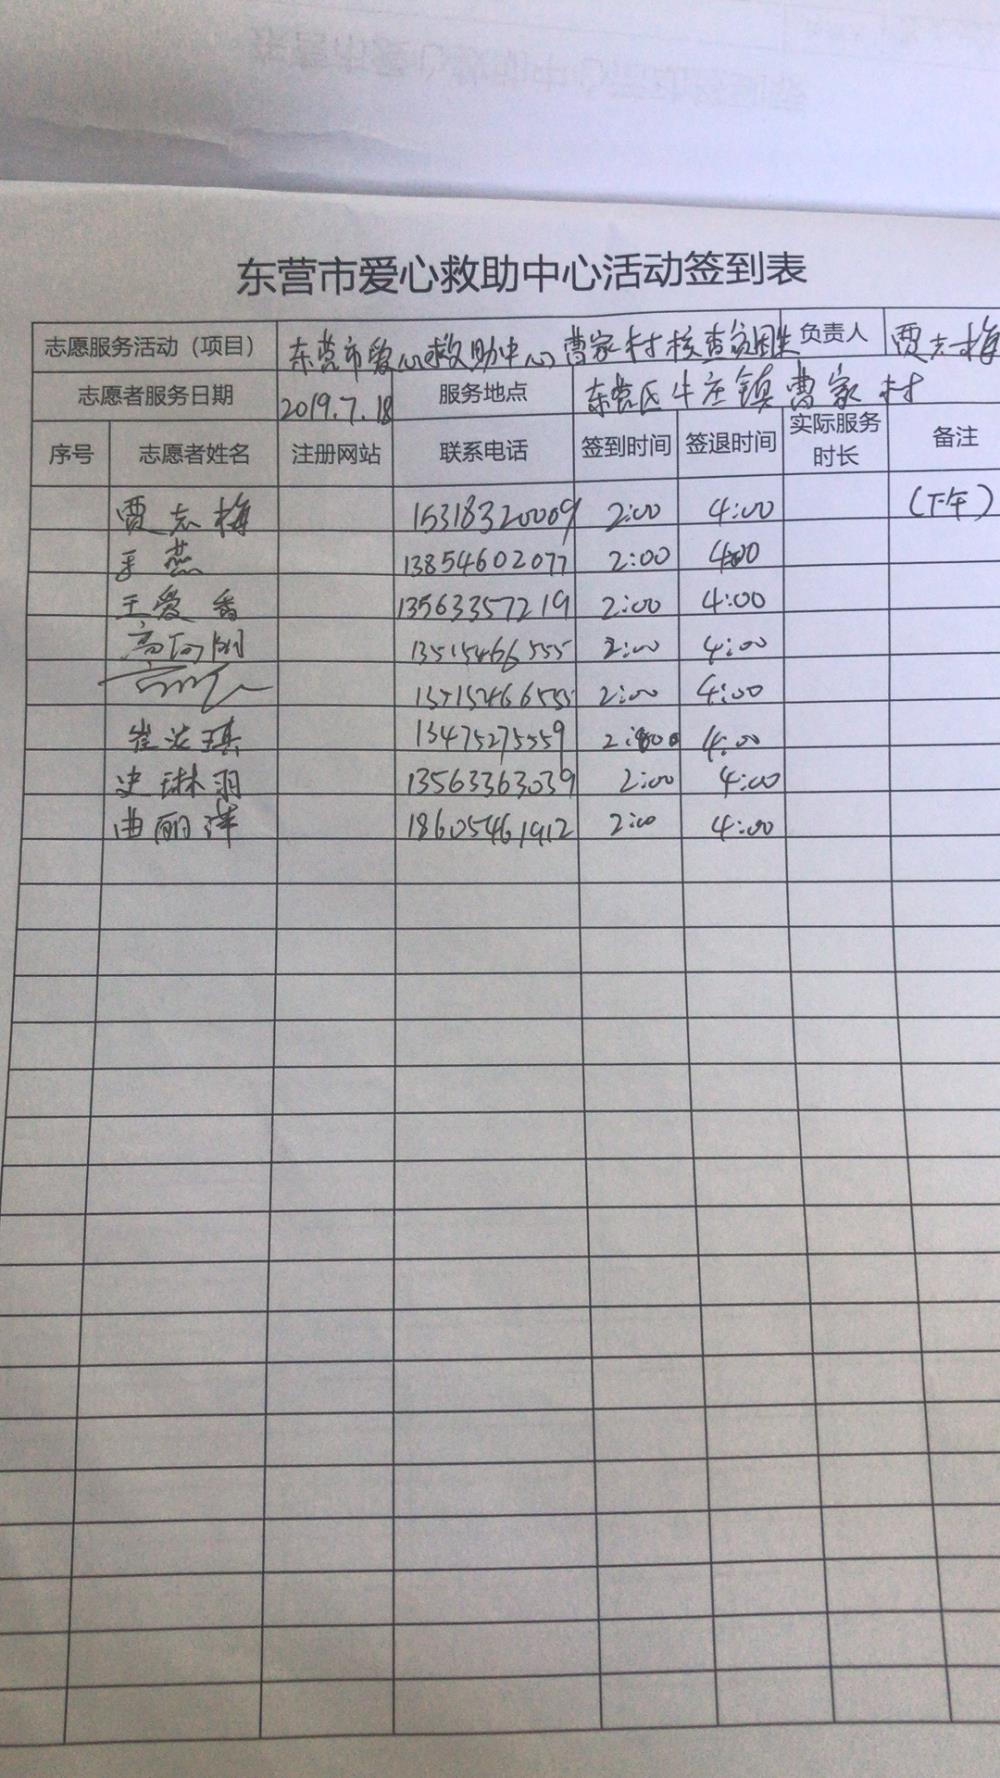 东营市爱心救助中心活动签到表
志愿服务活动（项目） 东营市爱心救助中心曹家村核查贫困生 负责人 贾志梅
志愿者服务日期 2019.7.18 服务地点 东营区牛庄镇曹家村
序号 志愿者姓名 注册网站 联系电话 签到时间 签退时间 实际服务时长 备注
贾志梅 15318320009 2:00 4:00 (下午)
燕 13854602077 2:00 4:00
王爱香 13563357219 2:00 4:00
13515466555 2:00 4:00
2:00 4:00
崔 琪 13475275559 2:00 4:00
史琳羽 13563363039 2:00 4:00
曲丽萍 18605461912 2:00 4:00